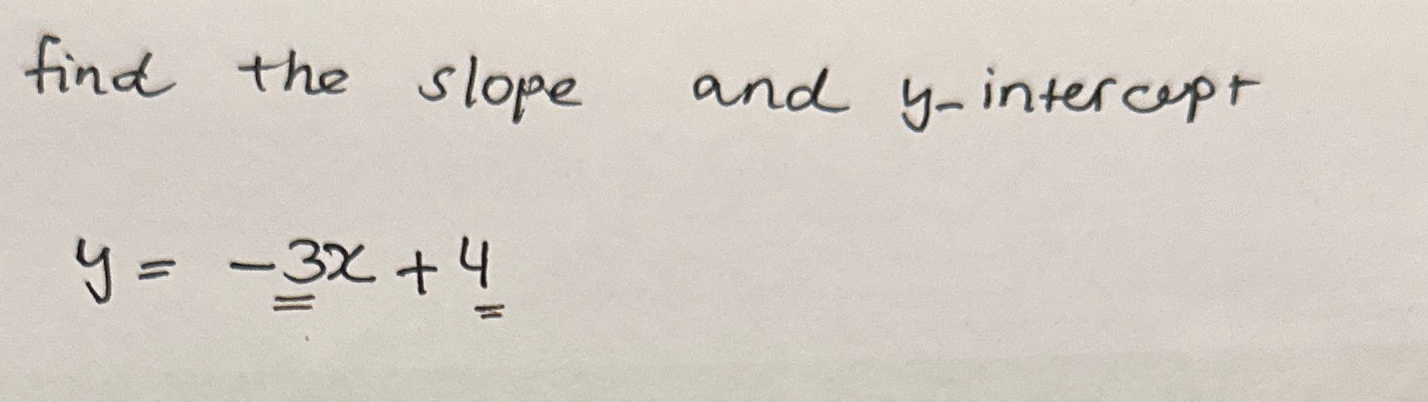 find the slope and y-intercept
y = -3x + 4